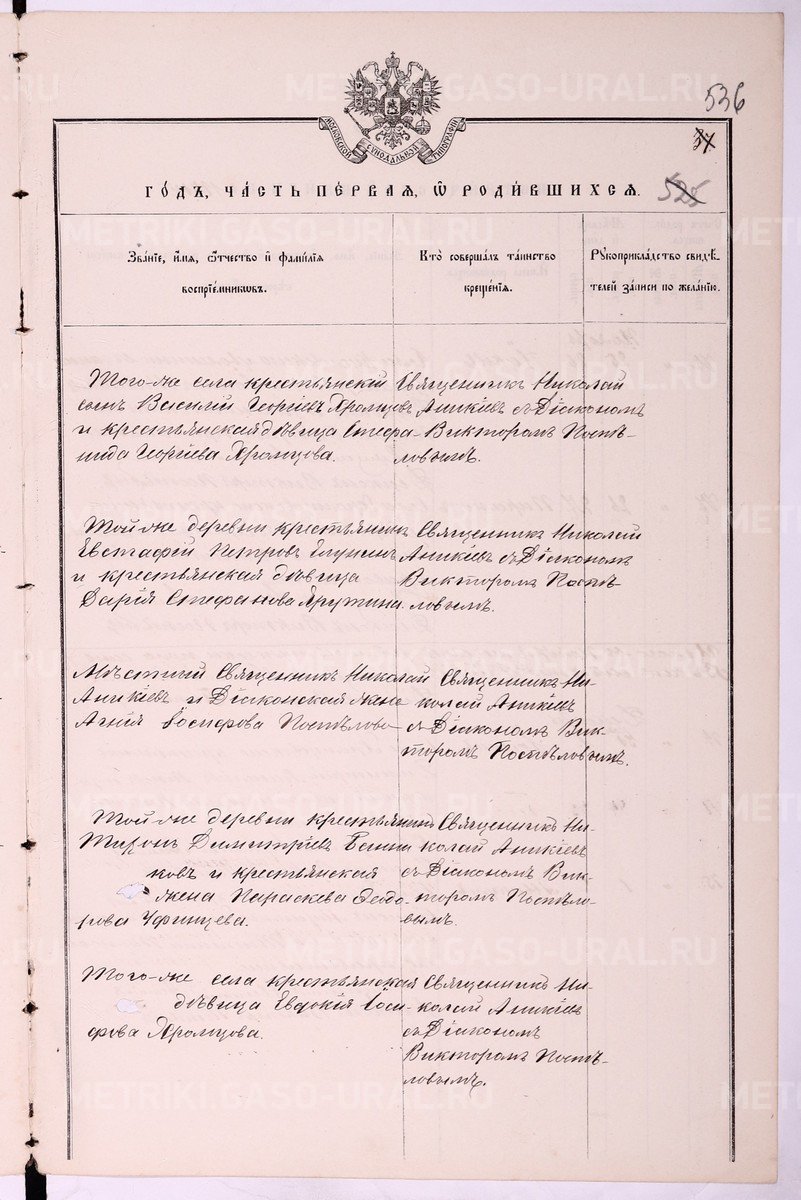 METRIKI.GASO-URAL.RU
536
МОСКОВСКОЙ СѴНОДАЛЬНОЙ ТИПОГРАФІИ
37
525
ГОДЪ, ЧАСТЬ ПЕРВАЯ, Ѡ РОДИВШИХСЯ.
Званіе, имя, Ѿчество и фамилія
воспріемниковъ.
Кто совершалъ таинство
крещенія.
Рꙋкоприкладство свидѣ-
телей записи по желанію.
Того-же села крестьянскій
сынъ Василій Георгіевъ Хромцовъ
и крестьянская дѣвица Стефа-
нида Георгіева Хромцова.
Священникъ Николай
Аникіевъ съ Діакономъ
Викторомъ Поспѣ-
ловымъ.
Той-же деревни крестьянинъ
Евстафій Петровъ
и крестьянская дѣвица
Дарія Стефанова
Священникъ Николай
Аникіевъ съ Діакономъ
Викторомъ Поспѣ-
ловымъ.
Мѣстный Священникъ Николай
Аникіевъ и Діаконская жена
Агнія Іосифова Поспѣлова
Священникъ Ни-
колай Аникіевъ
съ Діакономъ Вик-
торомъ Поспѣловымъ.
Той-же деревни крестьянинъ
Димитріевъ
ковъ и крестьянская
жена Параскева Ѳедо-
рова Уфинцева.
Священникъ Ни-
колай Аникіевъ
съ Діакономъ Вик-
торомъ Поспѣло-
вымъ.
Того-же села крестьянская
дѣвица Евдокія Іоси-
фова Хромцова.
Священникъ Ни-
колай Аникіевъ
съ Діакономъ
Викторомъ Поспѣ-
ловымъ.